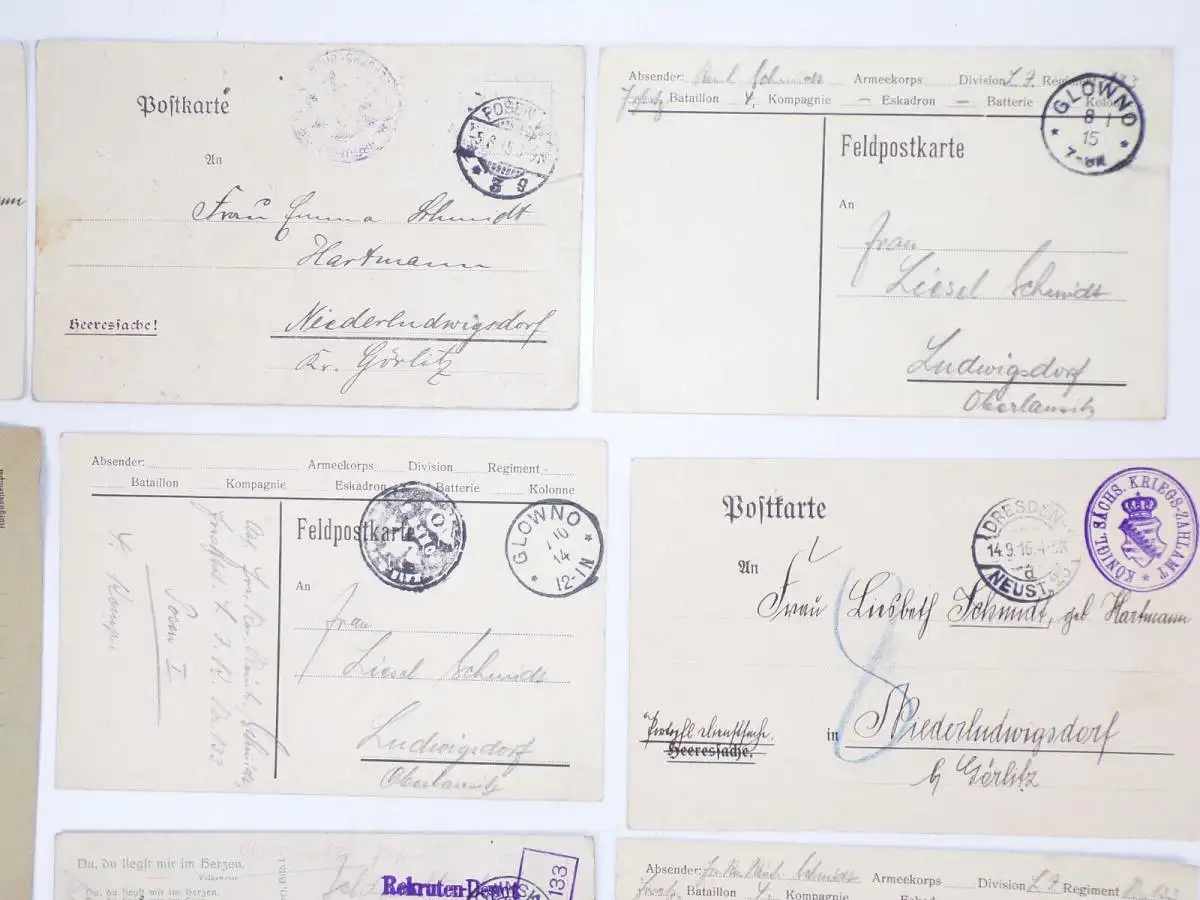 Postkarte
POSEN
3 g
An
Frau Emma Schmidt
Hartmann
Heeressache!
Niederludwigsdorf
Kr. Görlitz
Absender: Schmidt Armeekorps Division Regiment 133
Bataillon 4. Kompagnie — Eskadron — Batterie Kolonne
Feldpostkarte
GLOWNO
8 1
15
7-8N
An
Frau
Liesel Schmidt
Ludwigsdorf
Oberlausitz
Absender: Armeekorps Division Regiment
Bataillon Kompagnie Eskadron Batterie Kolonne
Feldpostkarte
GLOWNO
14
12-1N
An
Frau
Liesel Schmidt
Ludwigsdorf
Oberlausitz
Schmidt,
133
Posen I
Postkarte
DRESDEN-
14.9.16.4-5N
NEUST.
KÖNIGL. SÄCHS. KRIEGS-ZAHLAMT
An
Frau Liesbeth Schmidt, geb Hartmann
8
Heeressache.
in Niederludwigsdorf
b/ Görlitz
Du, du liegst mir im Herzen.
Volksweise
Du, du liegst mir im Herzen,
Rekruten-Depot
133
Absender: Schmidt Armeekorps Division Regiment 133
Bataillon 4. Kompagnie Eskadron Batterie